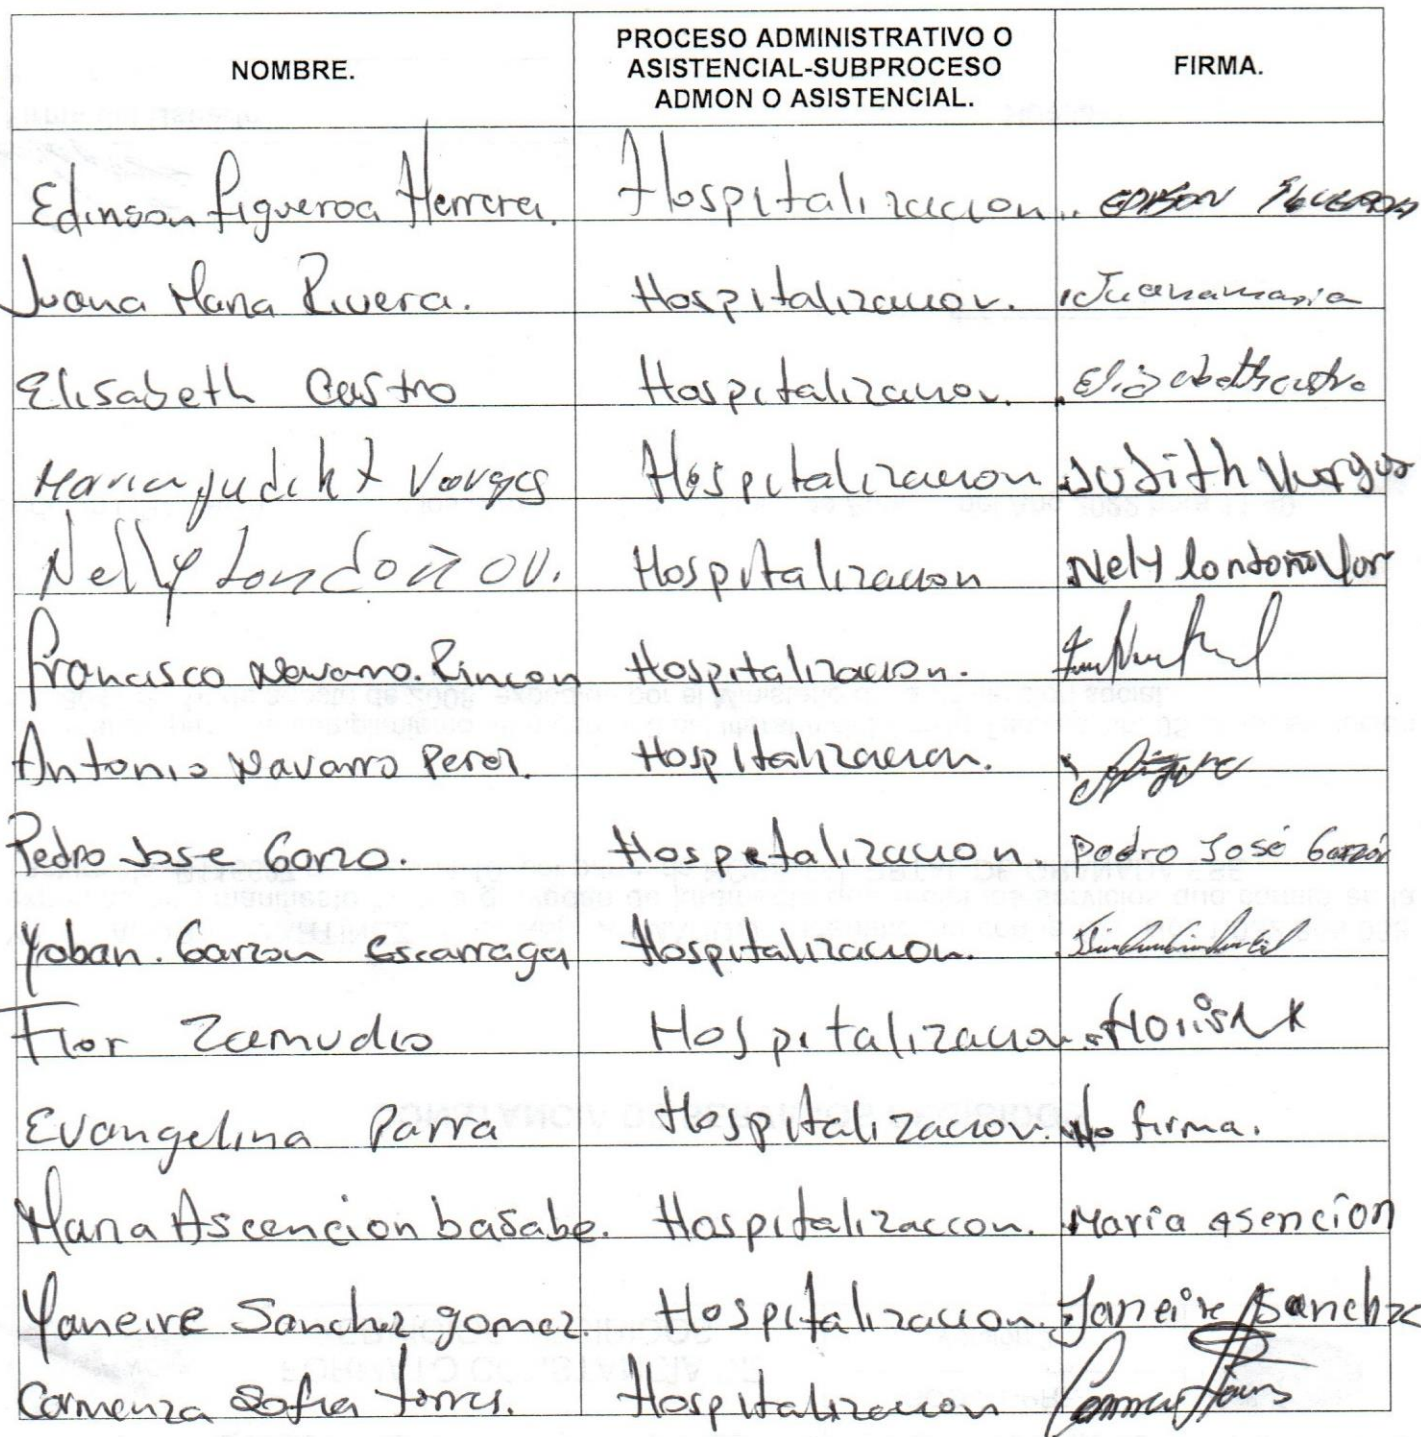 NOMBRE.
PROCESO ADMINISTRATIVO O
ASISTENCIAL-SUBPROCESO
ADMON O ASISTENCIAL.
FIRMA.
Edinson Figueroa Herrera. Hospitalizacion.. EDISON FIGUEROA
Juana Maria Rivera. Hospitalizacion. Juanamaria
Elisabeth Castro Hospitalizacion. Elizabeth castro
Maria judiht Vargas Hospitalizacion Judith Vargas
Nelly Londoño V. Hospitalizacion Nely londoño
Francisco Navarro. Rincon Hospitalizacion.
Antonio Navarro Perez. Hospitalizacion.
Pedro Jose Garzo. Hospetalizacion Pedro José Garzón
Yoban. Garzon Escarraga Hospitalizacion.
Flor Zamudio Hospitalizacion.
Evangelina Parra Hospitalizacion. No firma.
Maria Ascencion basabe. Hospitalizaccon. María asencion
Yaneire Sanchez gomez. Hospitalizacion. Janeire Sanchez
Carmenza Sofia torres. Hospitalizacion